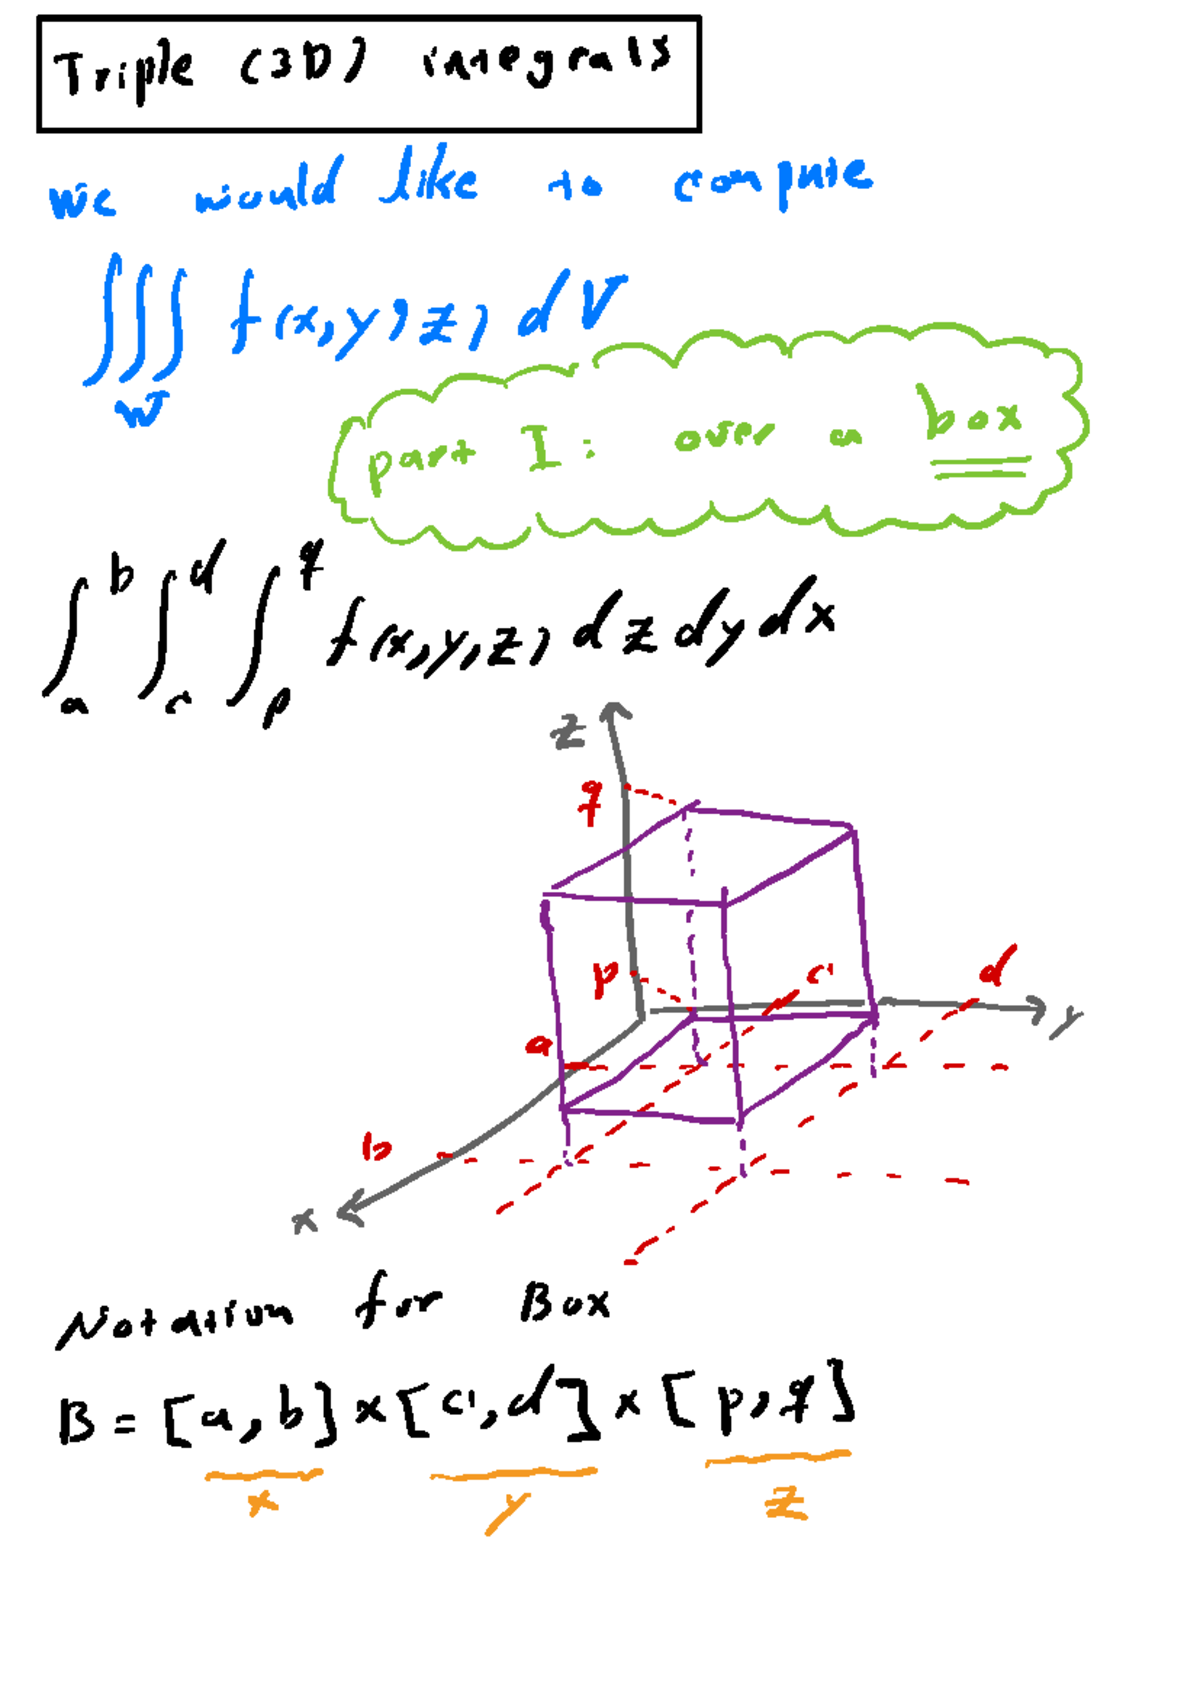 Triple (3D) integrals
we would like to compute
∭_W f(x,y,z) dV
part I: over a box
∫_a^b ∫_c^d ∫_p^q f(x,y,z) dz dy dx
z
q
p
c
d
y
a
b
x
Notation for Box
B = [a,b] × [c,d] × [p,q]
x y z